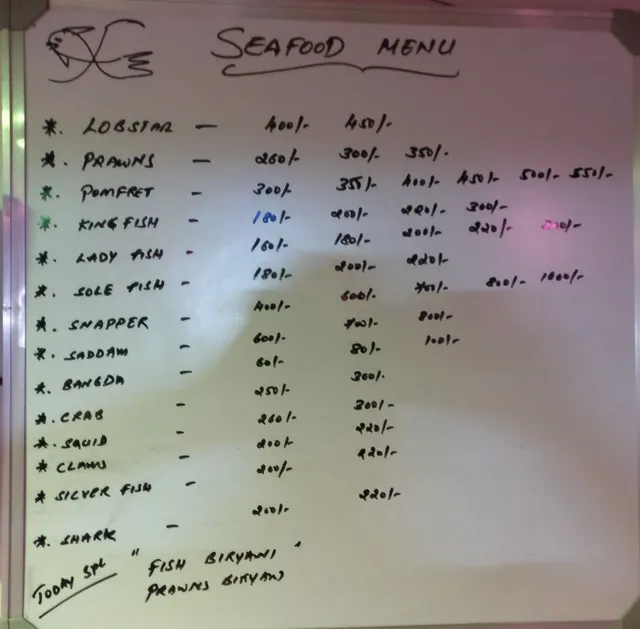 SEAFOOD MENU
*. LOBSTAR – 400/- 450/-
*. PRAWNS – 260/- 300/- 350/-
*. POMFRET – 300/- 350/- 400/- 450/- 500/- 550/-
*. KING FISH – 180/- 200/- 220/- 300/-
*. LADY FISH - 160/- 180/- 200/- 220/-
*. SOLE FISH – 180/- 200/- 220/-
*. SNAPPER – 400/- 600/- 700/- 800/- 1000/-
*. SADDAM – 600/- 700/- 800/-
*. BANGDA – 60/- 80/- 100/-
*. CRAB – 250/- 300/-
*. SQUID – 260/- 300/-
* CLAMS – 200/- 220/-
* SILVER FISH – 200/- 220/-
*. SHARK – 200/- 220/-
TODAY SPL " FISH BIRYANI "
PRAWNS BIRYANI